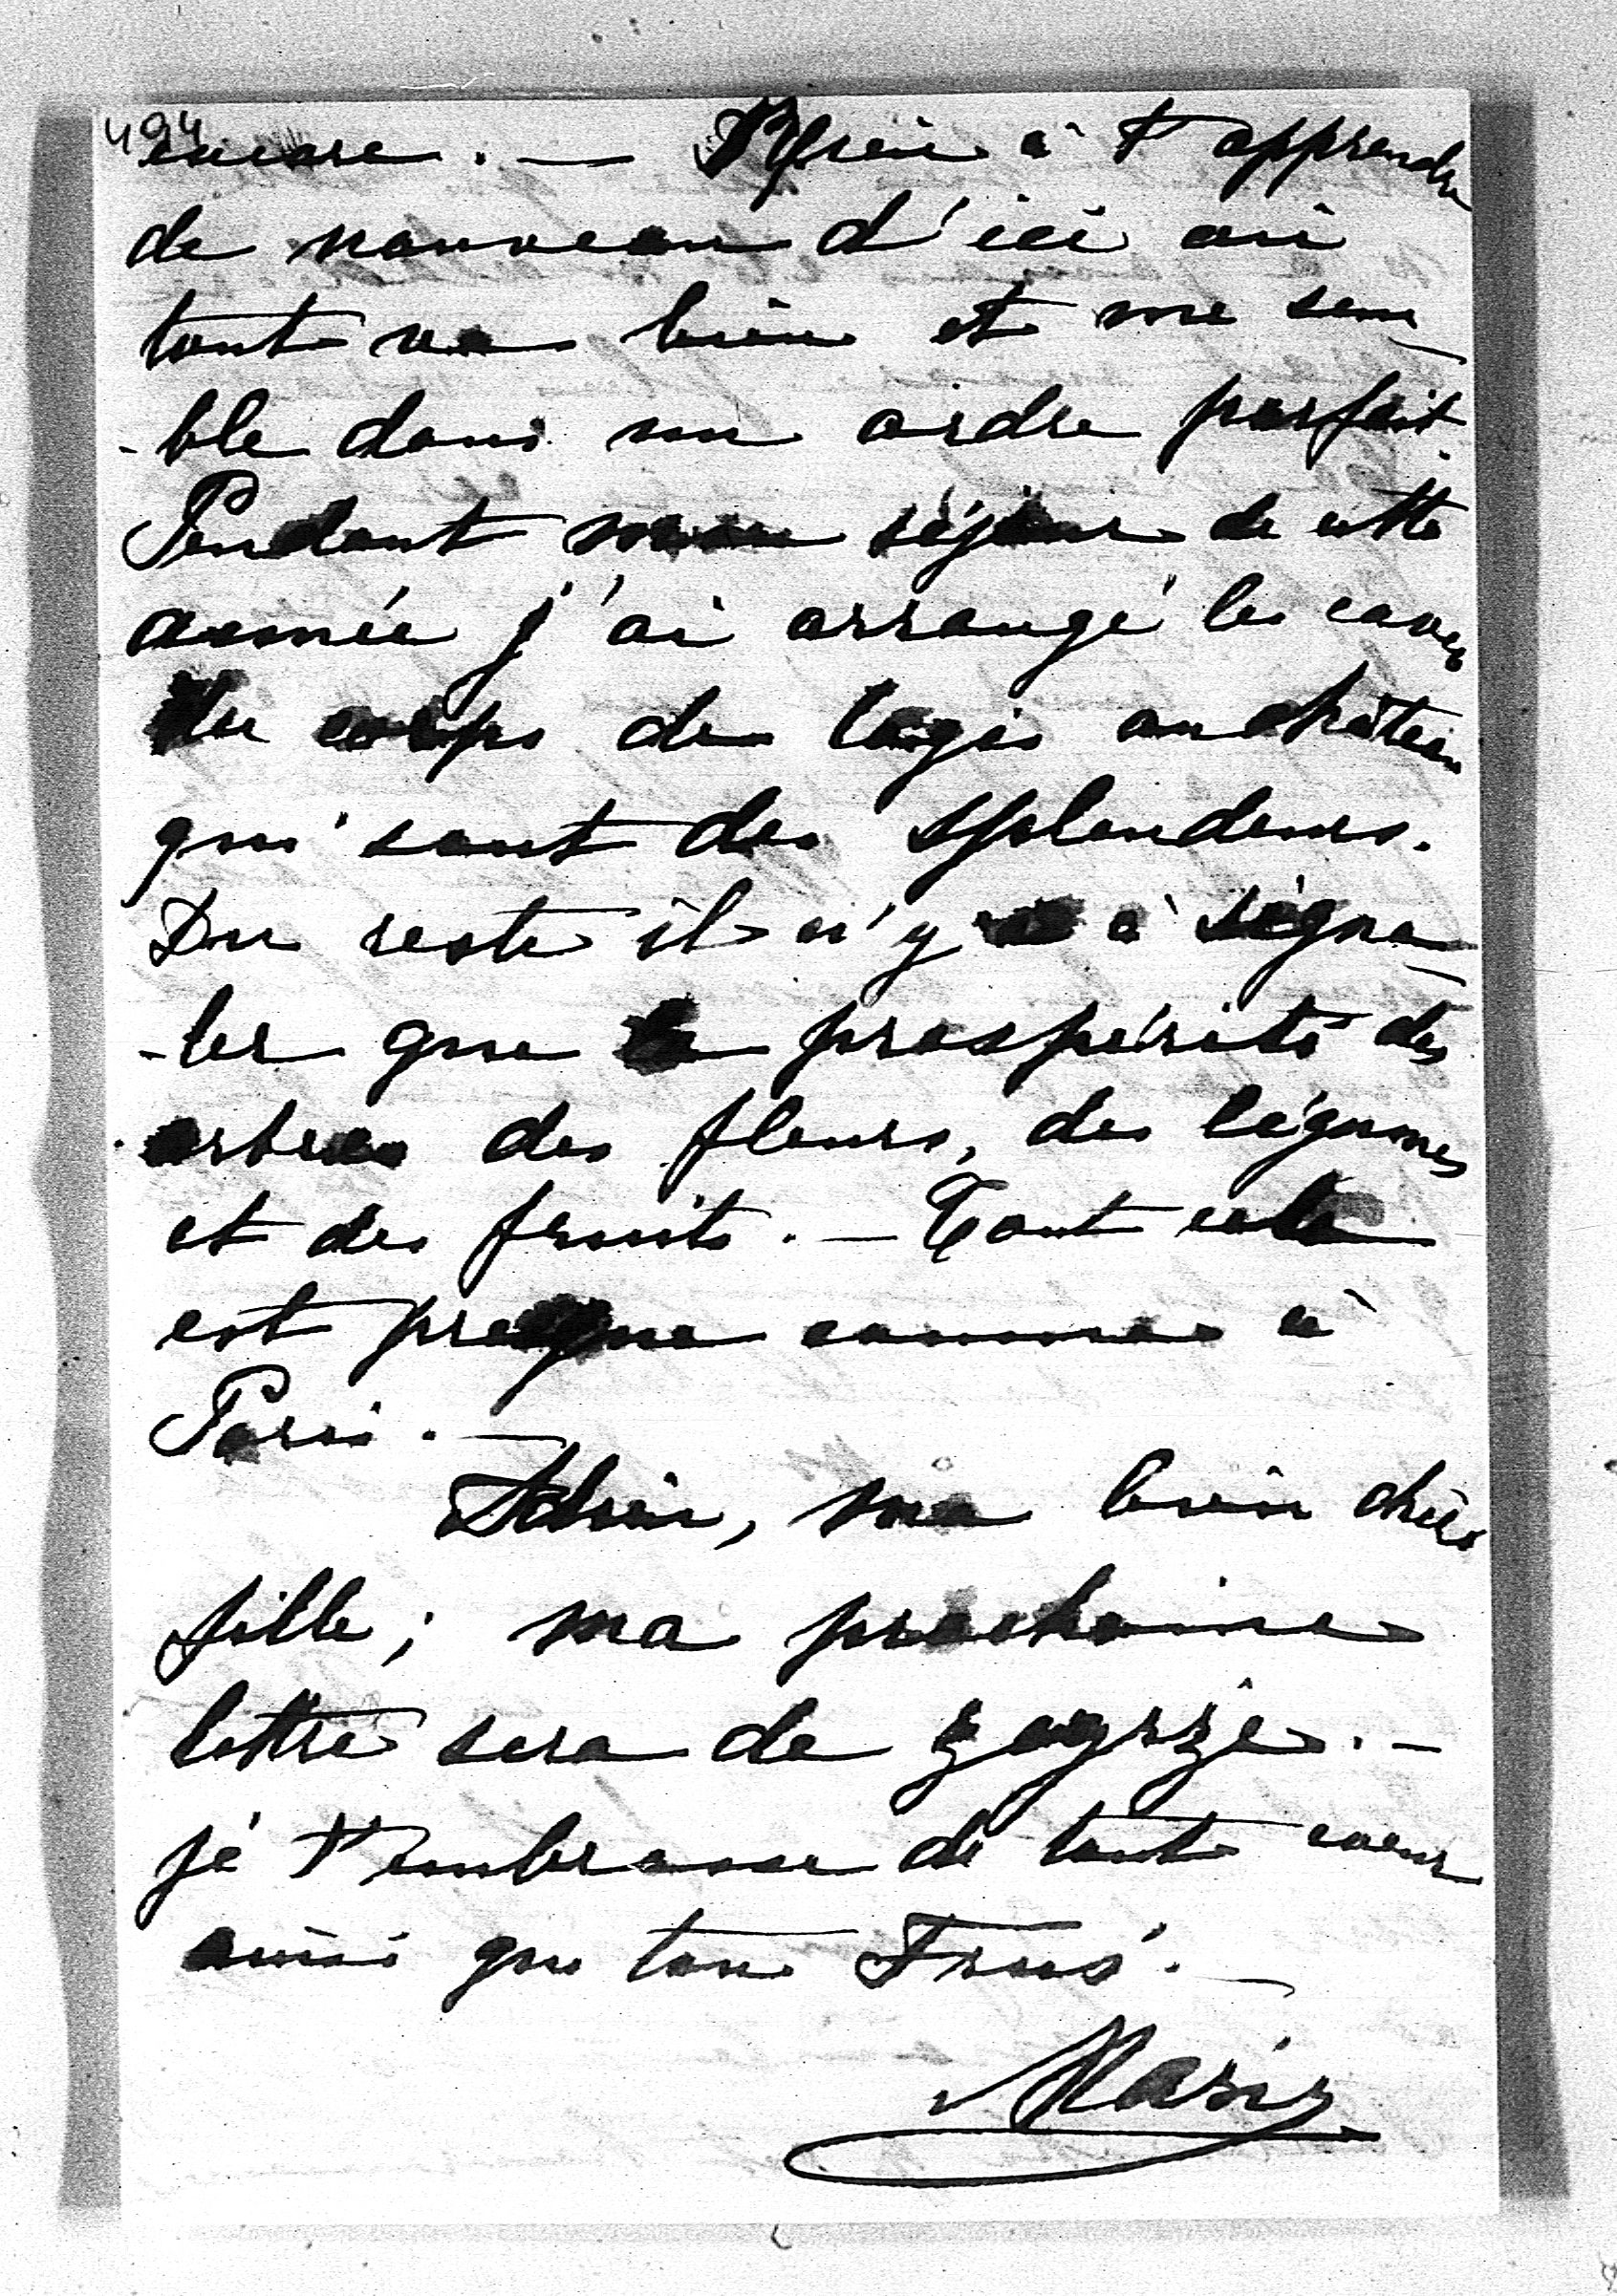 494
encore. — Rien à t'apprendre
de nouveau d'ici où
tout va bien et me sem-
-ble dans un ordre parfait.
Pendant mon séjour de cette
année j'ai arrangé les caves
du corps de logis au château
qui sont des splendeurs.
Du reste il n'y a à signa-
-ler que la prospérité des
arbres des fleurs, des légumes
et des fruits. — Tout cela
est presque comme à
Paris. —
Adieu, ma bien chère
fille; ma prochaine
lettre sera de . —
je t'embrasse de tout coeur
ainsi que ton .